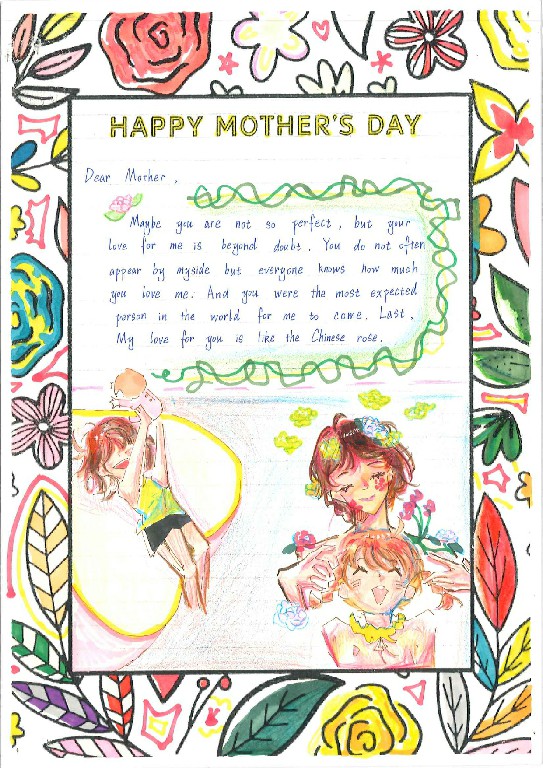 HAPPY MOTHER'S DAY
Dear Mother,
Maybe you are not so perfect, but your
love for me is beyond doubt. You do not often
appear by myside but everyone knows how much
you love me. And you were the most expected
person in the world for me to come. Last,
My love for you is like the Chinese rose.